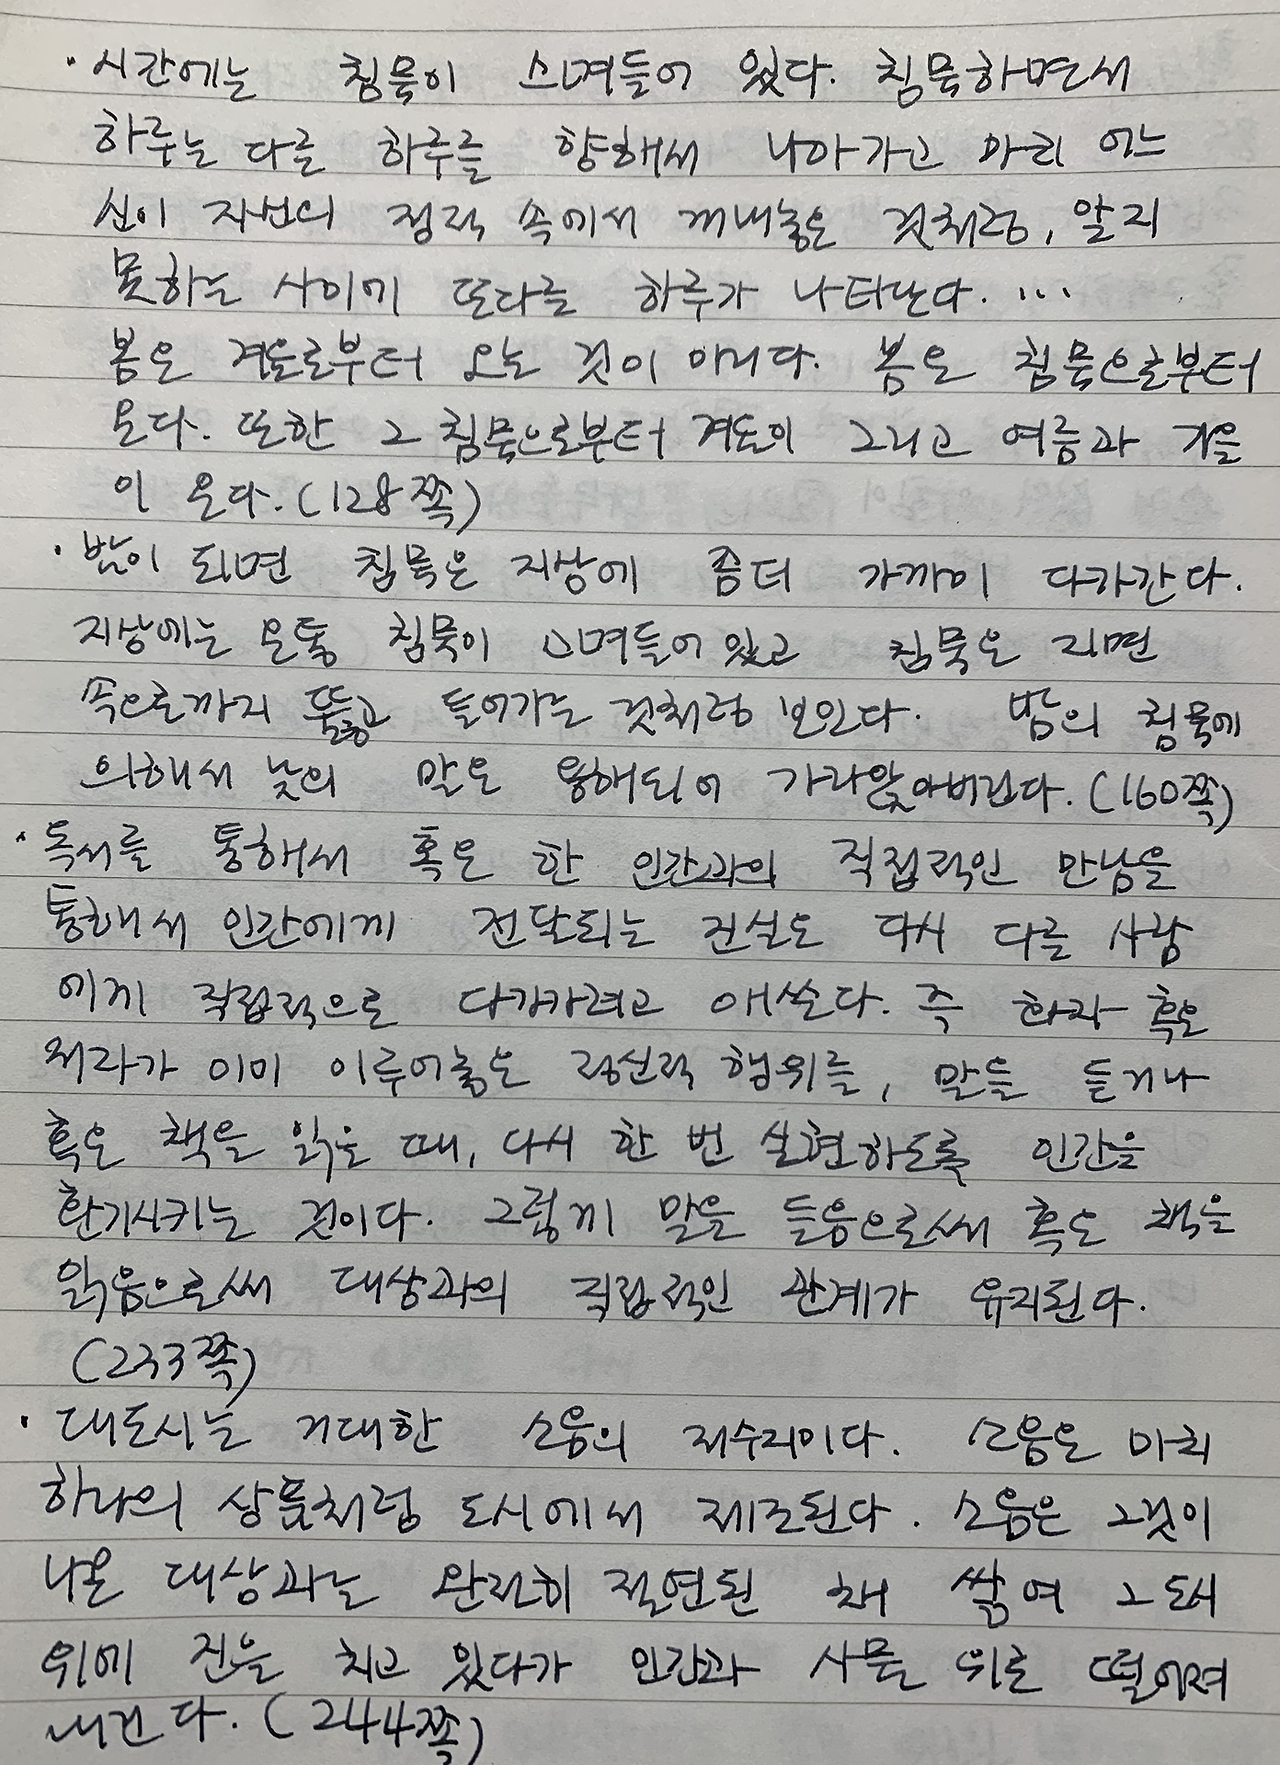 · 시간에는 침묵이 스며들어 있다. 침묵하면서
하루는 다른 하루를 향해서 나아가고 마치 어느
신이 자신의 정적 속에서 꺼내놓은 것처럼, 알지
못하는 사이에 또다른 하루가 나타난다. ...
봄은 겨울로부터 오는 것이 아니다. 봄은 침묵으로부터
온다. 또한 그 침묵으로부터 겨울이 그리고 여름과 가을
이 온다. (128쪽)
· 밤이 되면 침묵은 지상에 좀더 가까이 다가간다.
지상에는 온통 침묵이 스며들어 있고 침묵은 지면
속으로까지 뚫고 들어가는 것처럼 보인다. 밤의 침묵에
의해서 낮의 말은 용해되어 가라앉아버린다. (160쪽)
· 독서를 통해서 혹은 한 인간과의 직접적인 만남을
통해서 인간에게 전달되는 진실은 다시 다른 사람
에게 직접적으로 다가가려고 애쓴다. 즉 화자 혹은
저자가 이미 이루어놓은 정신적 행위를, 말을 듣거나
혹은 책을 읽을 때, 다시 한 번 실현하도록 인간을
환기시키는 것이다. 그렇게 말을 들음으로써 혹은 책을
읽음으로써 대상과의 직접적인 관계가 유지된다.
(233쪽)
· 대도시는 거대한 소음의 저수지이다. 소음은 마치
하나의 상품처럼 도시에서 제조된다. 소음은 그것이
나온 대상과는 완전히 절연된 채 쌓여 그 도시
위에 진을 치고 있다가 인간과 사물 위로 떨어져
내린다. (244쪽)